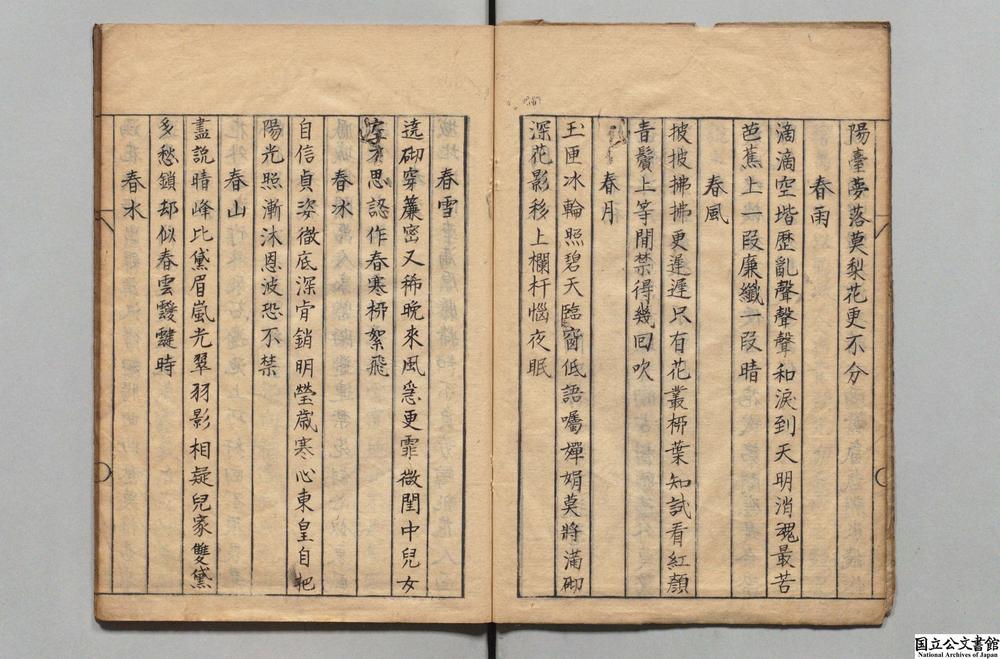 陽臺夢落莫梨花更不分
春雨
滴滴空堦歷亂聲聲聲和淚到天明消魂最苦
芭蕉上一段廉纖一段晴
春風
披披拂拂更遲遲只有花叢柳葉知試看紅顏
青鬢上等閒禁得幾回吹
春月
玉匣冰輪照碧天臨窗低語囑嬋娟莫將滿砌
深花影移上欄杆惱夜眠
春雪
遶砌穿簾密又稀晚來風急更霏微閨中兒女
才思認作春寒柳絮飛
春冰
自信貞姿徹底深肯銷明瑩歲寒心東皇自把
陽光照漸沐恩波恐不禁
春山
盡說晴峰比黛眉嵐光翠羽影相疑兒家雙黛
多愁鎖却似春雲靉靆時
春水
国立公文書館
National Archives of Japan